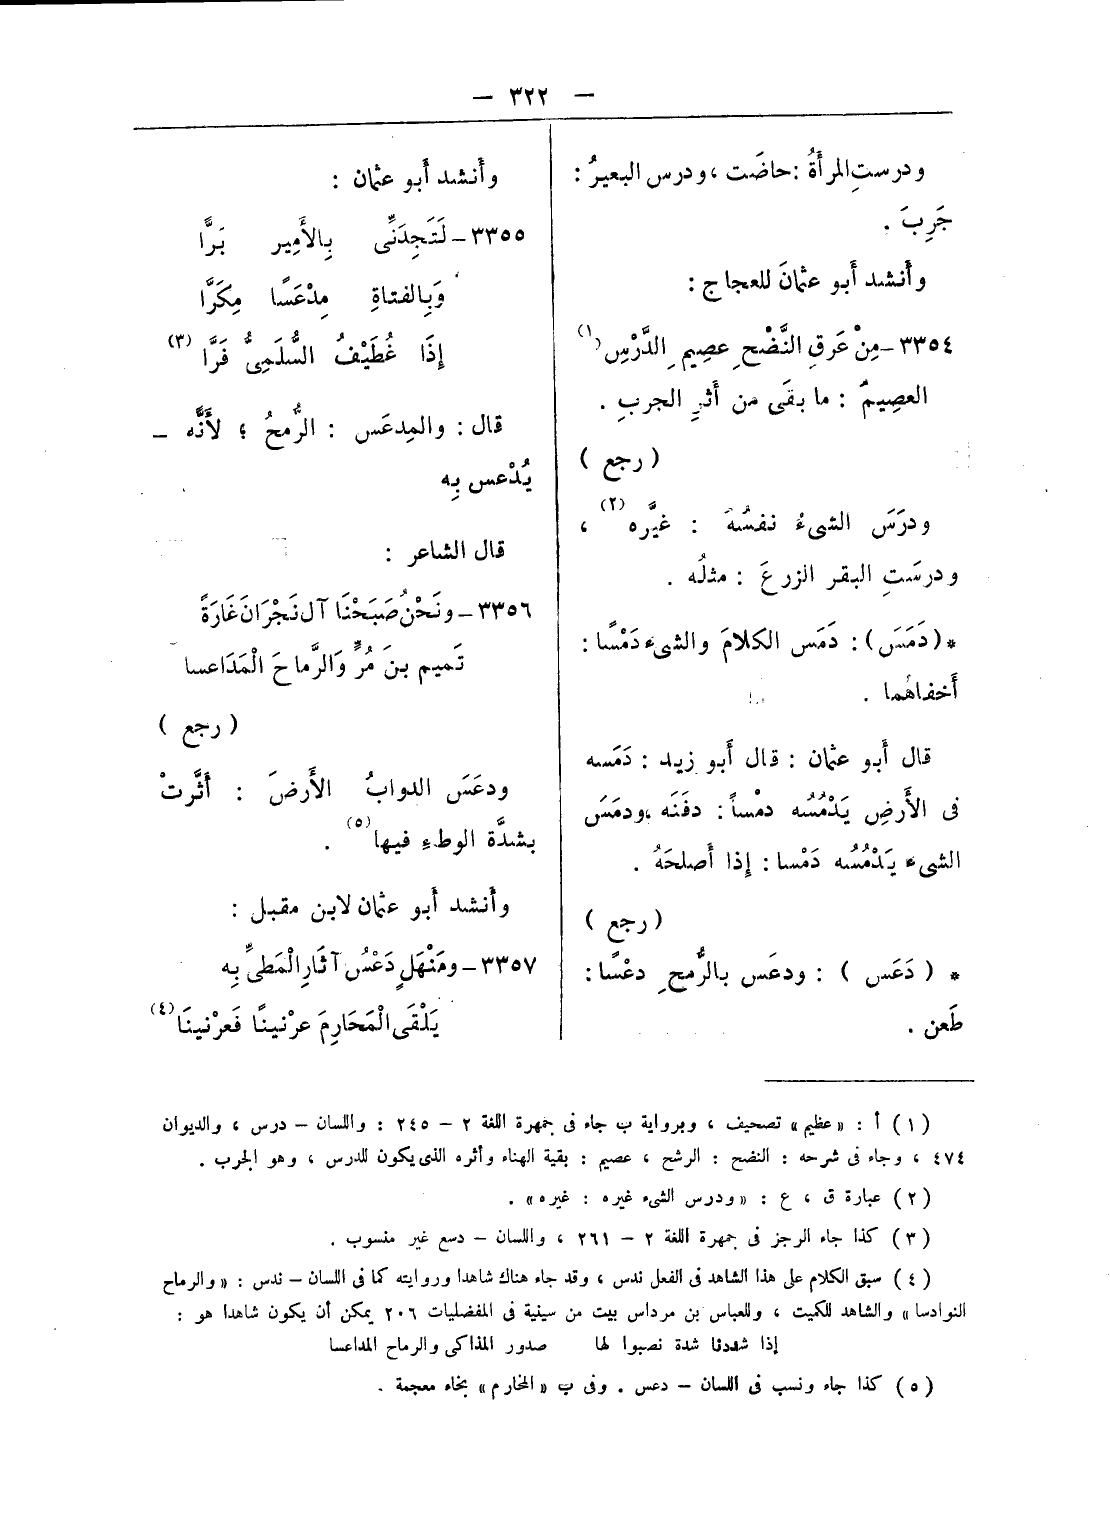 — ٣٢٢ —
ودرستِ المرأَةُ : حاضَت ، ودرس البعيرُ :
جَرِبَ .
وأَنشد أَبو عثمانَ للعجاج :
٣٣٥٤ – مِنْ عَرقِ النَّضْحِ عصِيمِ الدَّرْسِ (١)
العصِيمُ : ما بقَى من أَثرِ الجربِ .
( رجع )
ودرَسَ الشىءُ نفسُهُ : غيَّره (٢) ،
ودرسَتِ البقر الزرعَ : مثلُه .
* (دَمَسَ) : دَمَس الكلامَ والشىءَ دَمْسًا :
أَخفاهُما .
قال أَبو عثمان : قال أَبو زيد : دَمَسه
فى الأَرضِ يَدْمُسُه دمْساً : دفَنَه ، ودمَسَ
الشىءَ يَدْمُسُه دَمْسا : إِذا أَصلحَهُ .
( رجع )
* ( دَعَس ) : ودعَس بالرُّمحِ دعْسًا :
طَعن .
وأَنشد أَبو عثمان :
٣٣٥٥ – لَتَجِدَنِّى بِالأَمِير بَرًّا
وَبِالفتاةِ مِدْعَسًا مِكَرًّا
إِذَا غُطَيْفُ السُّلَمِىُّ فَرَّا (٣)
قال : والمِدعَس : الرُّمحُ ؛ لأَنَّه –
يُدْعس بِه
قال الشاعر :
٣٣٥٦ – ونَحْنُ صَبَحْنَا آل نَجْرَانَ غَارَةً
تَميم بنَ مُرٍّ وَالرَّماحَ الْمَدَاعسا
( رجع )
ودعَسَ الدوابُ الأَرضَ : أَثَّرتْ
بشدَّة الوطءِ فيها (٥) .
وأَنشد أَبو عثمان لابن مقبل :
٣٣٥٧ – ومَنْهَلٍ دَعْسُ آثَارِ الْمَطىِّ بِه
يَلْقَى الْمَحَارِمَ عرْنينًا فَعرْنينَا (٤)
(١) أ : «عظيم» تصحيف ، وبرواية ب جاء فى جمهرة اللغة ٢ – ٢٤٥ : واللسان – درس ، والديوان
٤٧٤ ، وجاء فى شرحه : النضح : الرشح ، عصيم : بقية الهناء وأثره الذى يكون للدرس ، وهو الجرب .
(٢) عبارة ق ، ع : «ودرس الشىء غيره : غيره» .
(٣) كذا جاء الرجز فى جمهرة اللغة ٢ – ٢٦١ ، واللسان – دسع غير منسوب .
(٤) سبق الكلام على هذا الشاهد فى الفعل ندس ، وقد جاء هناك شاهدا وروايته كما فى اللسان – ندس : «والرماح
النوادسا» والشاهد للكميت ، وللعباس بن مرداس بيت من سينية فى المفضليات ٢٠٦ يمكن أن يكون شاهدا هو :
إذا شددنا شدة نصبوا لها صدور المذاكى والرماح المداعسا
(٥) كذا جاء ونسب فى اللسان – دعس . وفى ب «المخارم» بخاء معجمة .